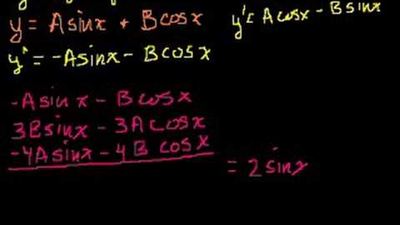 y = Asinx + Bcosx
y' = Acosx - Bsinx
y" = -Asinx - Bcosx
-Asinx - Bcosx
3Bsinx - 3Acosx
-4Asinx - 4Bcosx
= 2sinx